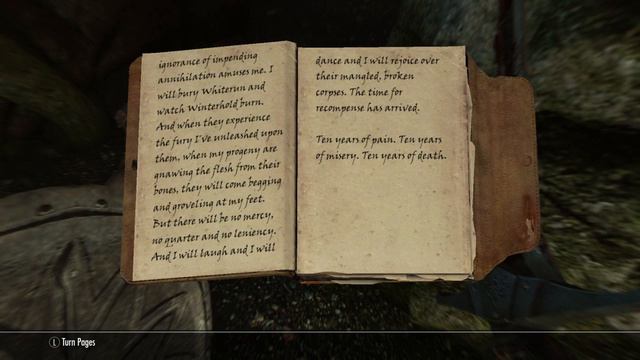 ignorance of impending
annihilation amuses me. I
will bury Whiterun and
watch Winterhold burn.
And when they experience
the fury I've unleashed upon
them, when my progeny are
gnawing the flesh from their
bones, they will come begging
and groveling at my feet.
But there will be no mercy,
no quarter and no leniency.
And I will laugh and I will
dance and I will rejoice over
their mangled, broken
corpses. The time for
recompense has arrived.
Ten years of pain. Ten years
of misery. Ten years of death.
L Turn Pages